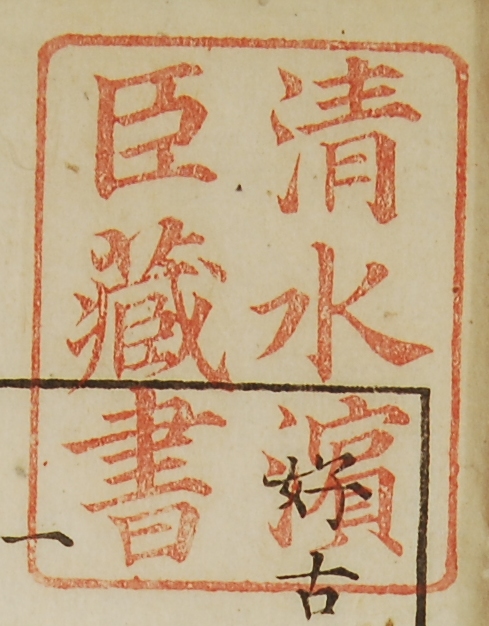 清水濵
臣藏書
好古
一